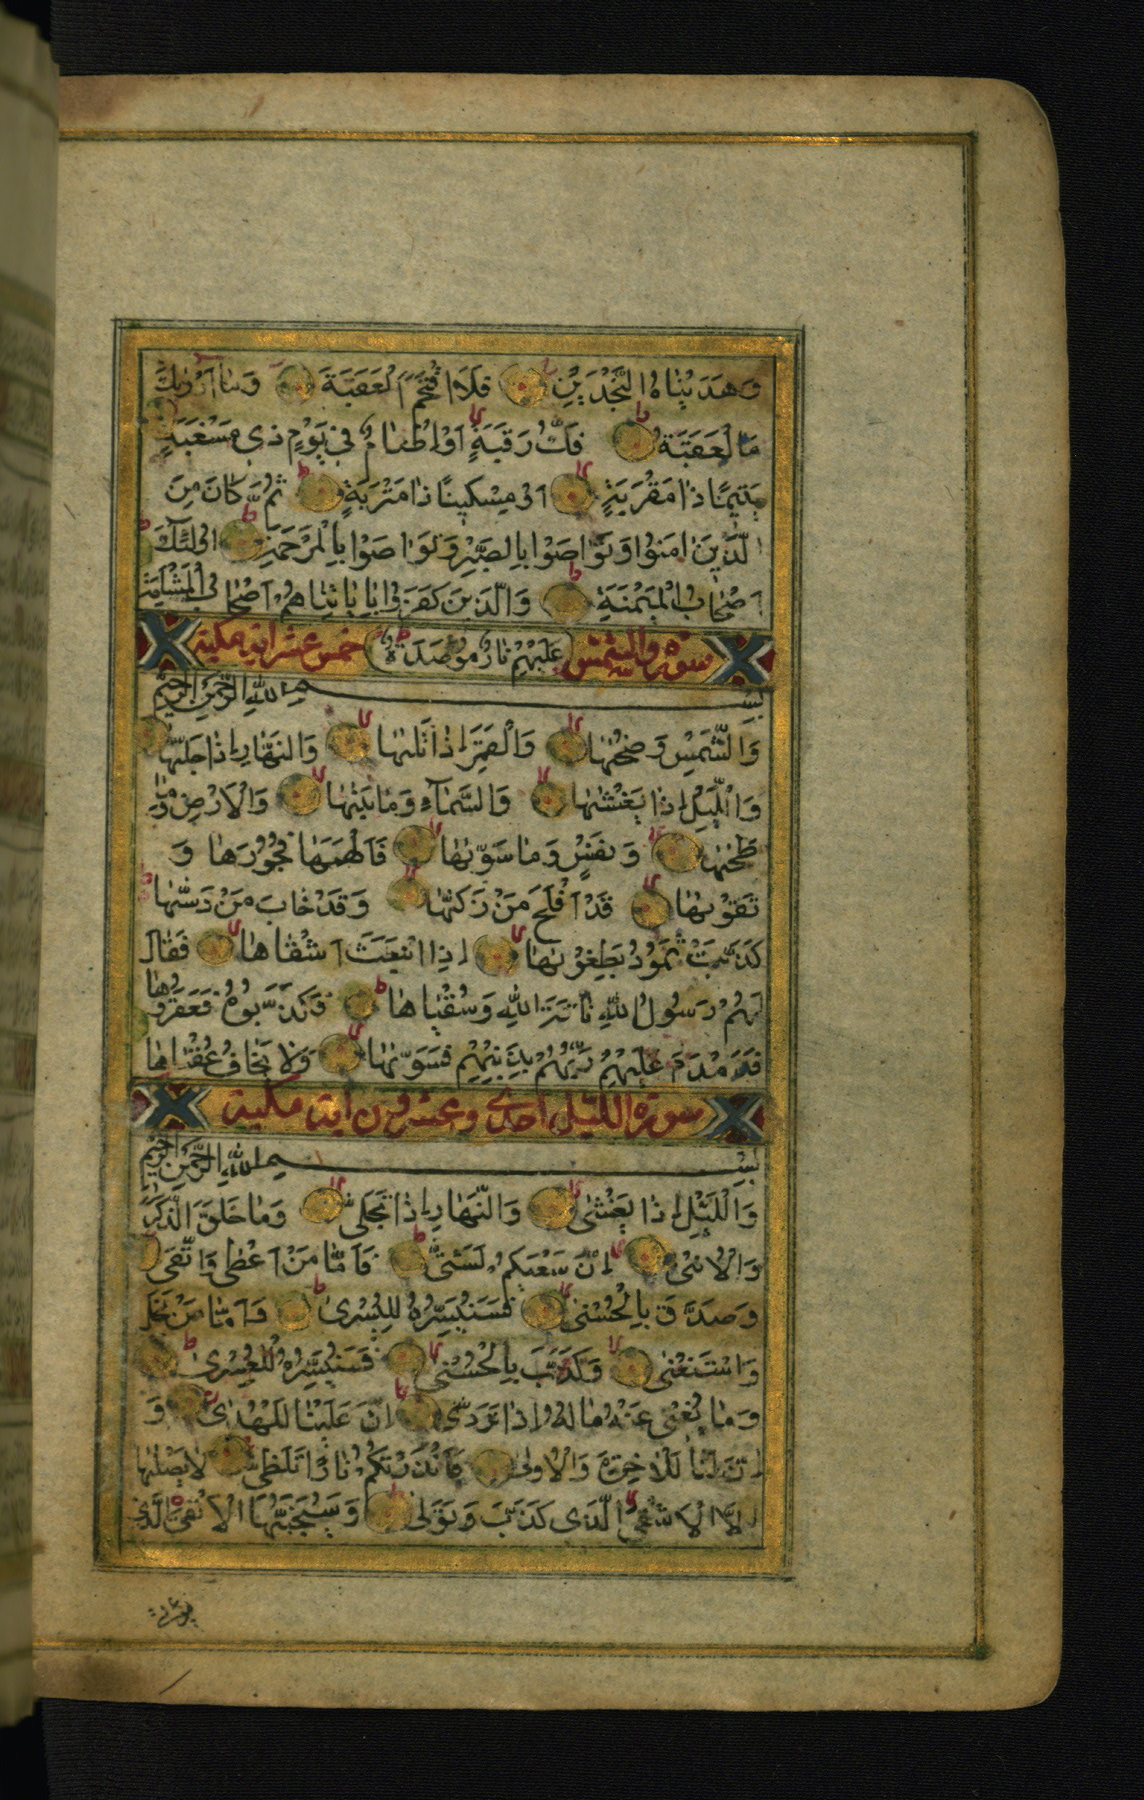 وَهَدَيْنَاهُ النَّجْدَيْنِ فَلَا اقْتَحَمَ الْعَقَبَةَ وَمَا اَدْرٰيكَ
مَا لْعَقَبَةُ فَكُّ رَقَبَةٍ اَوْ اِطْعَامٌ فِي يَوْمٍ ذِي مَسْغَبَةٍ
يَتِيمًا ذَا مَقْرَبَةٍ اَوْ مِسْكِينًا ذَا مَتْرَبَةٍ ثُمَّ كَانَ مِنَ
الَّذِينَ اٰمَنُوا وَتَوَاصَوْا بِالصَّبْرِ وَتَوَاصَوْا بِالْمَرْحَمَةِ اُولٰئِكَ
اَصْحَابُ الْمَيْمَنَةِ وَالَّذِينَ كَفَرُوا بِاٰيَاتِنَا هُمْ اَصْحَابُ الْمَشْاَمَةِ
عَلَيْهِمْ نَارٌ مُؤْصَدَةٌ
سورة والشمس خمس عشر اية مكية
بِسْمِ اللّٰهِ الرَّحْمٰنِ الرَّحِيمِ
وَالشَّمْسِ وَضُحٰيهَا وَالْقَمَرِ اِذَا تَلٰيهَا وَالنَّهَارِ اِذَا جَلّٰيهَا
وَالَّيْلِ اِذَا يَغْشٰيهَا وَالسَّمَآءِ وَمَا بَنٰيهَا وَالْاَرْضِ وَمَا
طَحٰيهَا وَنَفْسٍ وَمَا سَوّٰيهَا فَاَلْهَمَهَا فُجُورَهَا وَ
تَقْوٰيهَا قَدْ اَفْلَحَ مَنْ زَكّٰيهَا وَقَدْ خَابَ مَنْ دَسّٰيهَا
كَذَّبَتْ ثَمُودُ بِطَغْوٰيهَا اِذِ انْبَعَثَ اَشْقَاهَا فَقَالَ
لَهُمْ رَسُولُ اللّٰهِ نَاقَةَ اللّٰهِ وَسُقْيَاهَا فَكَذَّبُوهُ فَعَقَرُوهَا
فَدَمْدَمَ عَلَيْهِمْ رَبُّهُمْ بِذَنْبِهِمْ فَسَوّٰيهَا وَلَا يَخَافُ عُقْبَاهَا
سورة الليل احدى وعشرون اية مكية
بِسْمِ اللّٰهِ الرَّحْمٰنِ الرَّحِيمِ
وَالَّيْلِ اِذَا يَغْشٰى وَالنَّهَارِ اِذَا تَجَلّٰى وَمَا خَلَقَ الذَّكَرَ
وَالْاُنْثٰى اِنَّ سَعْيَكُمْ لَشَتّٰى فَاَمَّا مَنْ اَعْطٰى وَاتَّقٰى
وَصَدَّقَ بِالْحُسْنٰى فَسَنُيَسِّرُهُ لِلْيُسْرٰى وَاَمَّا مَنْ بَخِلَ
وَاسْتَغْنٰى وَكَذَّبَ بِالْحُسْنٰى فَسَنُيَسِّرُهُ لِلْعُسْرٰى
وَمَا يُغْنِي عَنْهُ مَالُهُ اِذَا تَرَدّٰى اِنَّ عَلَيْنَا لَلْهُدٰى وَ
اِنَّ لَنَا لَلْاٰخِرَةَ وَالْاُولٰى فَاَنْذَرْتُكُمْ نَارًا تَلَظّٰى لَا يَصْلٰيهَا
اِلَّا الْاَشْقَى الَّذِي كَذَّبَ وَتَوَلّٰى وَسَيُجَنَّبُهَا الْاَتْقَى الَّذِي